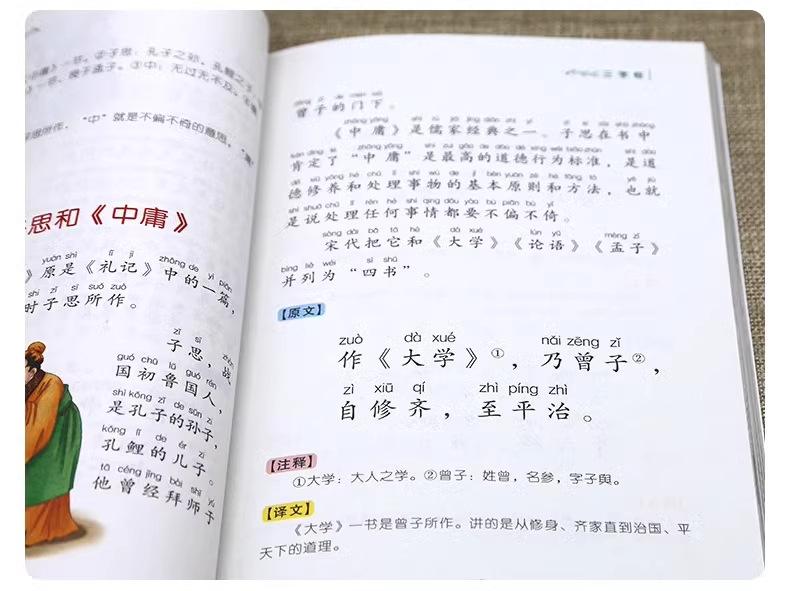 庸》一书。②子思：孔子之孙，孔鲤之子。
书，授予孟子。③中：无过无不及。④
思所作，“中”就是不偏不倚的意思，“庸”
思和《中庸》
yuán shì lǐ jì zhōng de yì piān
》原是《礼记》中的一篇，
shí zǐ sī suǒ zuò
时子思所作。
zǐ sī zhàn
子思，战
guó chū lǔ guó rén
国初鲁国人，
shì kǒng zǐ de sūn zi
是孔子的孙子，
kǒng lǐ de ér zi
孔鲤的儿子。
tā céng jīng bài shī yú
他曾经拜师于
三字经
zēng zǐ de mén xià
曾子的门下。
zhōng yōng shì rú jiā jīng diǎn zhī yī zǐ sī zài shū zhōng
《中庸》是儒家经典之一、子思在书中
kěn dìng le zhōng yōng shì zuì gāo de dào dé xíng wéi biāo zhǔn shì dào
肯定了“中庸”是最高的道德行为标准，是道
dé xiū yǎng hé chǔ lǐ shì wù de jī běn yuán zé hé fāng fǎ yě jiù
德修养和处理事物的基本原则和方法，也就
shì shuō chǔ lǐ rèn hé shì qing dōu yào bù piān bù yǐ
是说处理任何事情都要不偏不倚。
sòng dài bǎ tā hé dà xué lún yǔ mèng zǐ
宋代把它和《大学》《论语》《孟子》
bìng liè wéi sì shū
并列为“四书”。
【原文】
zuò dà xué nǎi zēng zǐ
作《大学》①，乃曾子②，
zì xiū qí zhì píng zhì
自修齐，至平治。
【注释】
①大学：大人之学。②曾子：姓曾，名参，字子舆。
【译文】
《大学》一书是曾子所作。讲的是从修身、齐家直到治国、平
天下的道理。